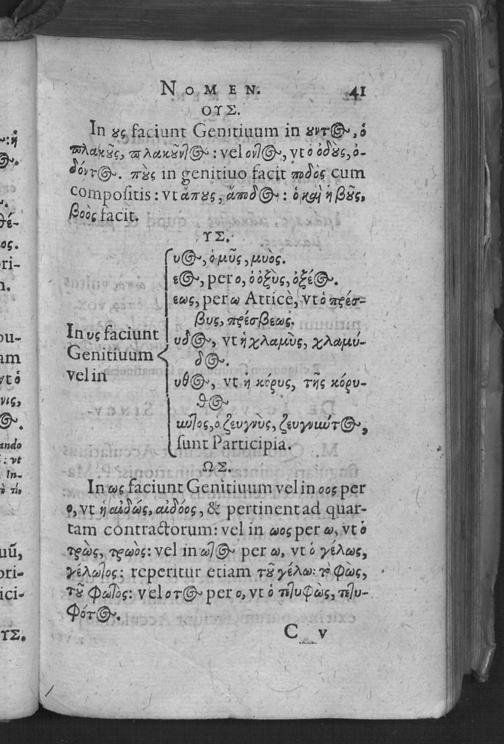 NOMEN. 41
ΟΥΣ.
In ους faciunt Genitiuum in ουντος, ὁ
πλακοῦς, πλακοῦντος: vel οντος, vt ὁ ὀδοὺς, ὀ-
δόντος. ποὺς in genitiuo facit ποδὸς cum
compositis: vt ἄπους, ἄποδος: ὁ καὶ ἡ βοῦς,
βοὸς facit.
ΥΣ.
In υς faciunt
Genitiuum
vel in
υος, ὁ μῦς, μυος.
εος, per ο, ὁ ὀξὺς, ὀξέος.
εως, per ω Atticè, vt ὁ πρέσ-
βυς, πρέσβεως.
υδος, vt ἡ χλαμὺς, χλαμύ-
δος.
υθος, vt ἡ κόρυς, τῆς κόρυ-
θος
υντος, ὁ ζευγνὺς, ζευγνύντος,
sunt Participia.
ΩΣ.
In ως faciunt Genitiuum vel in οος per
ο, vt ἡ αἰδώς, αἰδόος, & pertinent ad quar-
tam contractorum: vel in ωος per ω, vt ὁ
τρὼς, τρωὸς: vel in ωτος per ω, vt ὁ γέλως,
γέλωτος: reperitur etiam τοῦ γέλω: τὸ φῶς,
τοῦ φωτὸς: vel οτος per ο, vt ὁ τετυφὼς, τετυ-
φότος.
C v
ΥΣ.